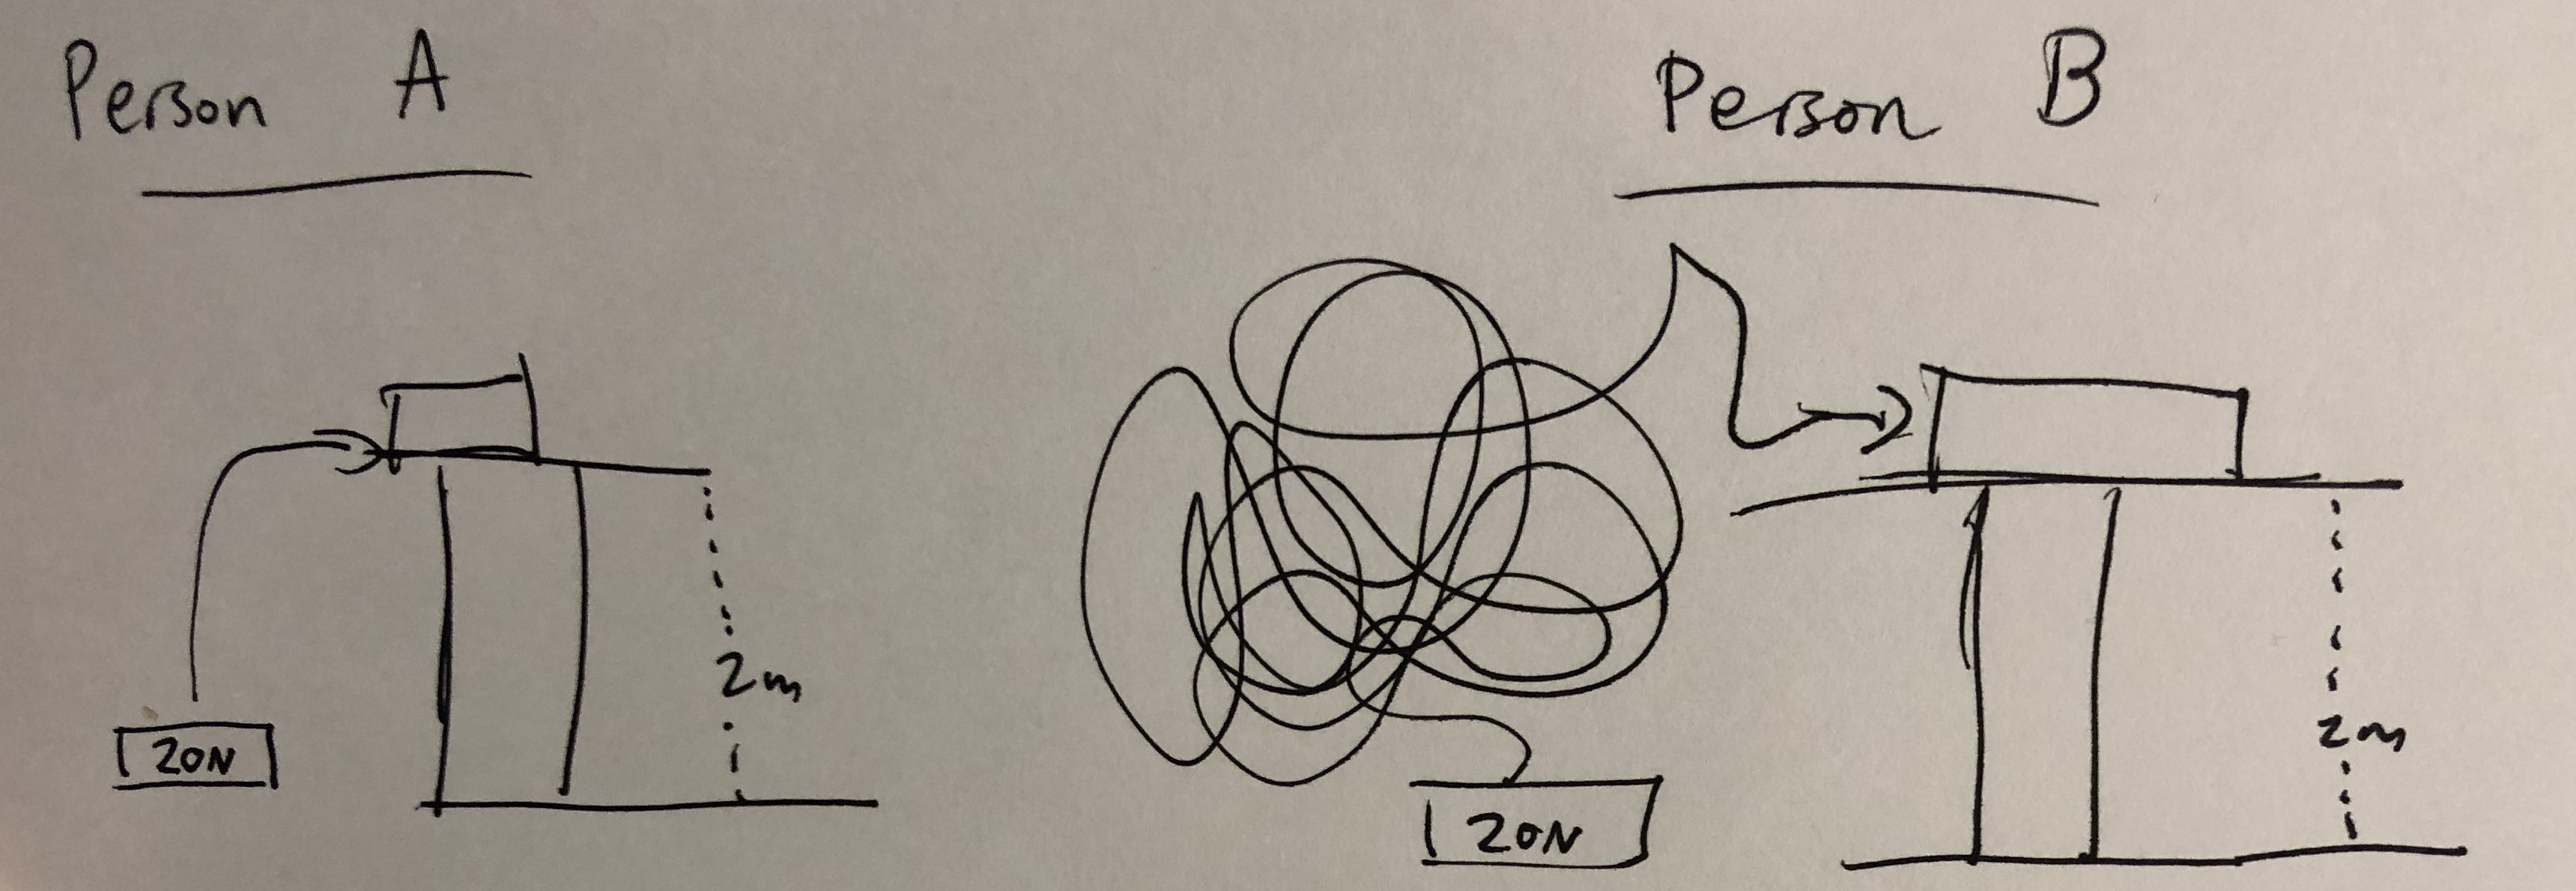 Person A
Person B
20N
2m
20N
2m